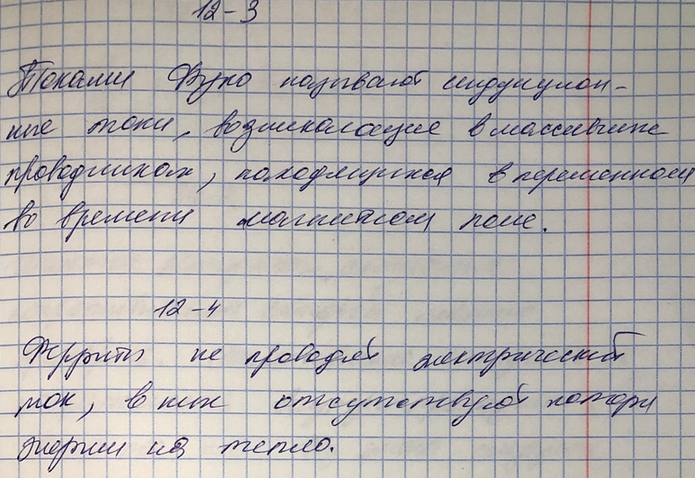 12-3
Токами Фуко называют индукцион-
ные токи, возникающие в массивных
проводниках, находящихся в переменном
во времени магнитном поле.
12-4
Ферриты не проводят электрический
ток, в них отсутствуют потери
энергии на тепло.